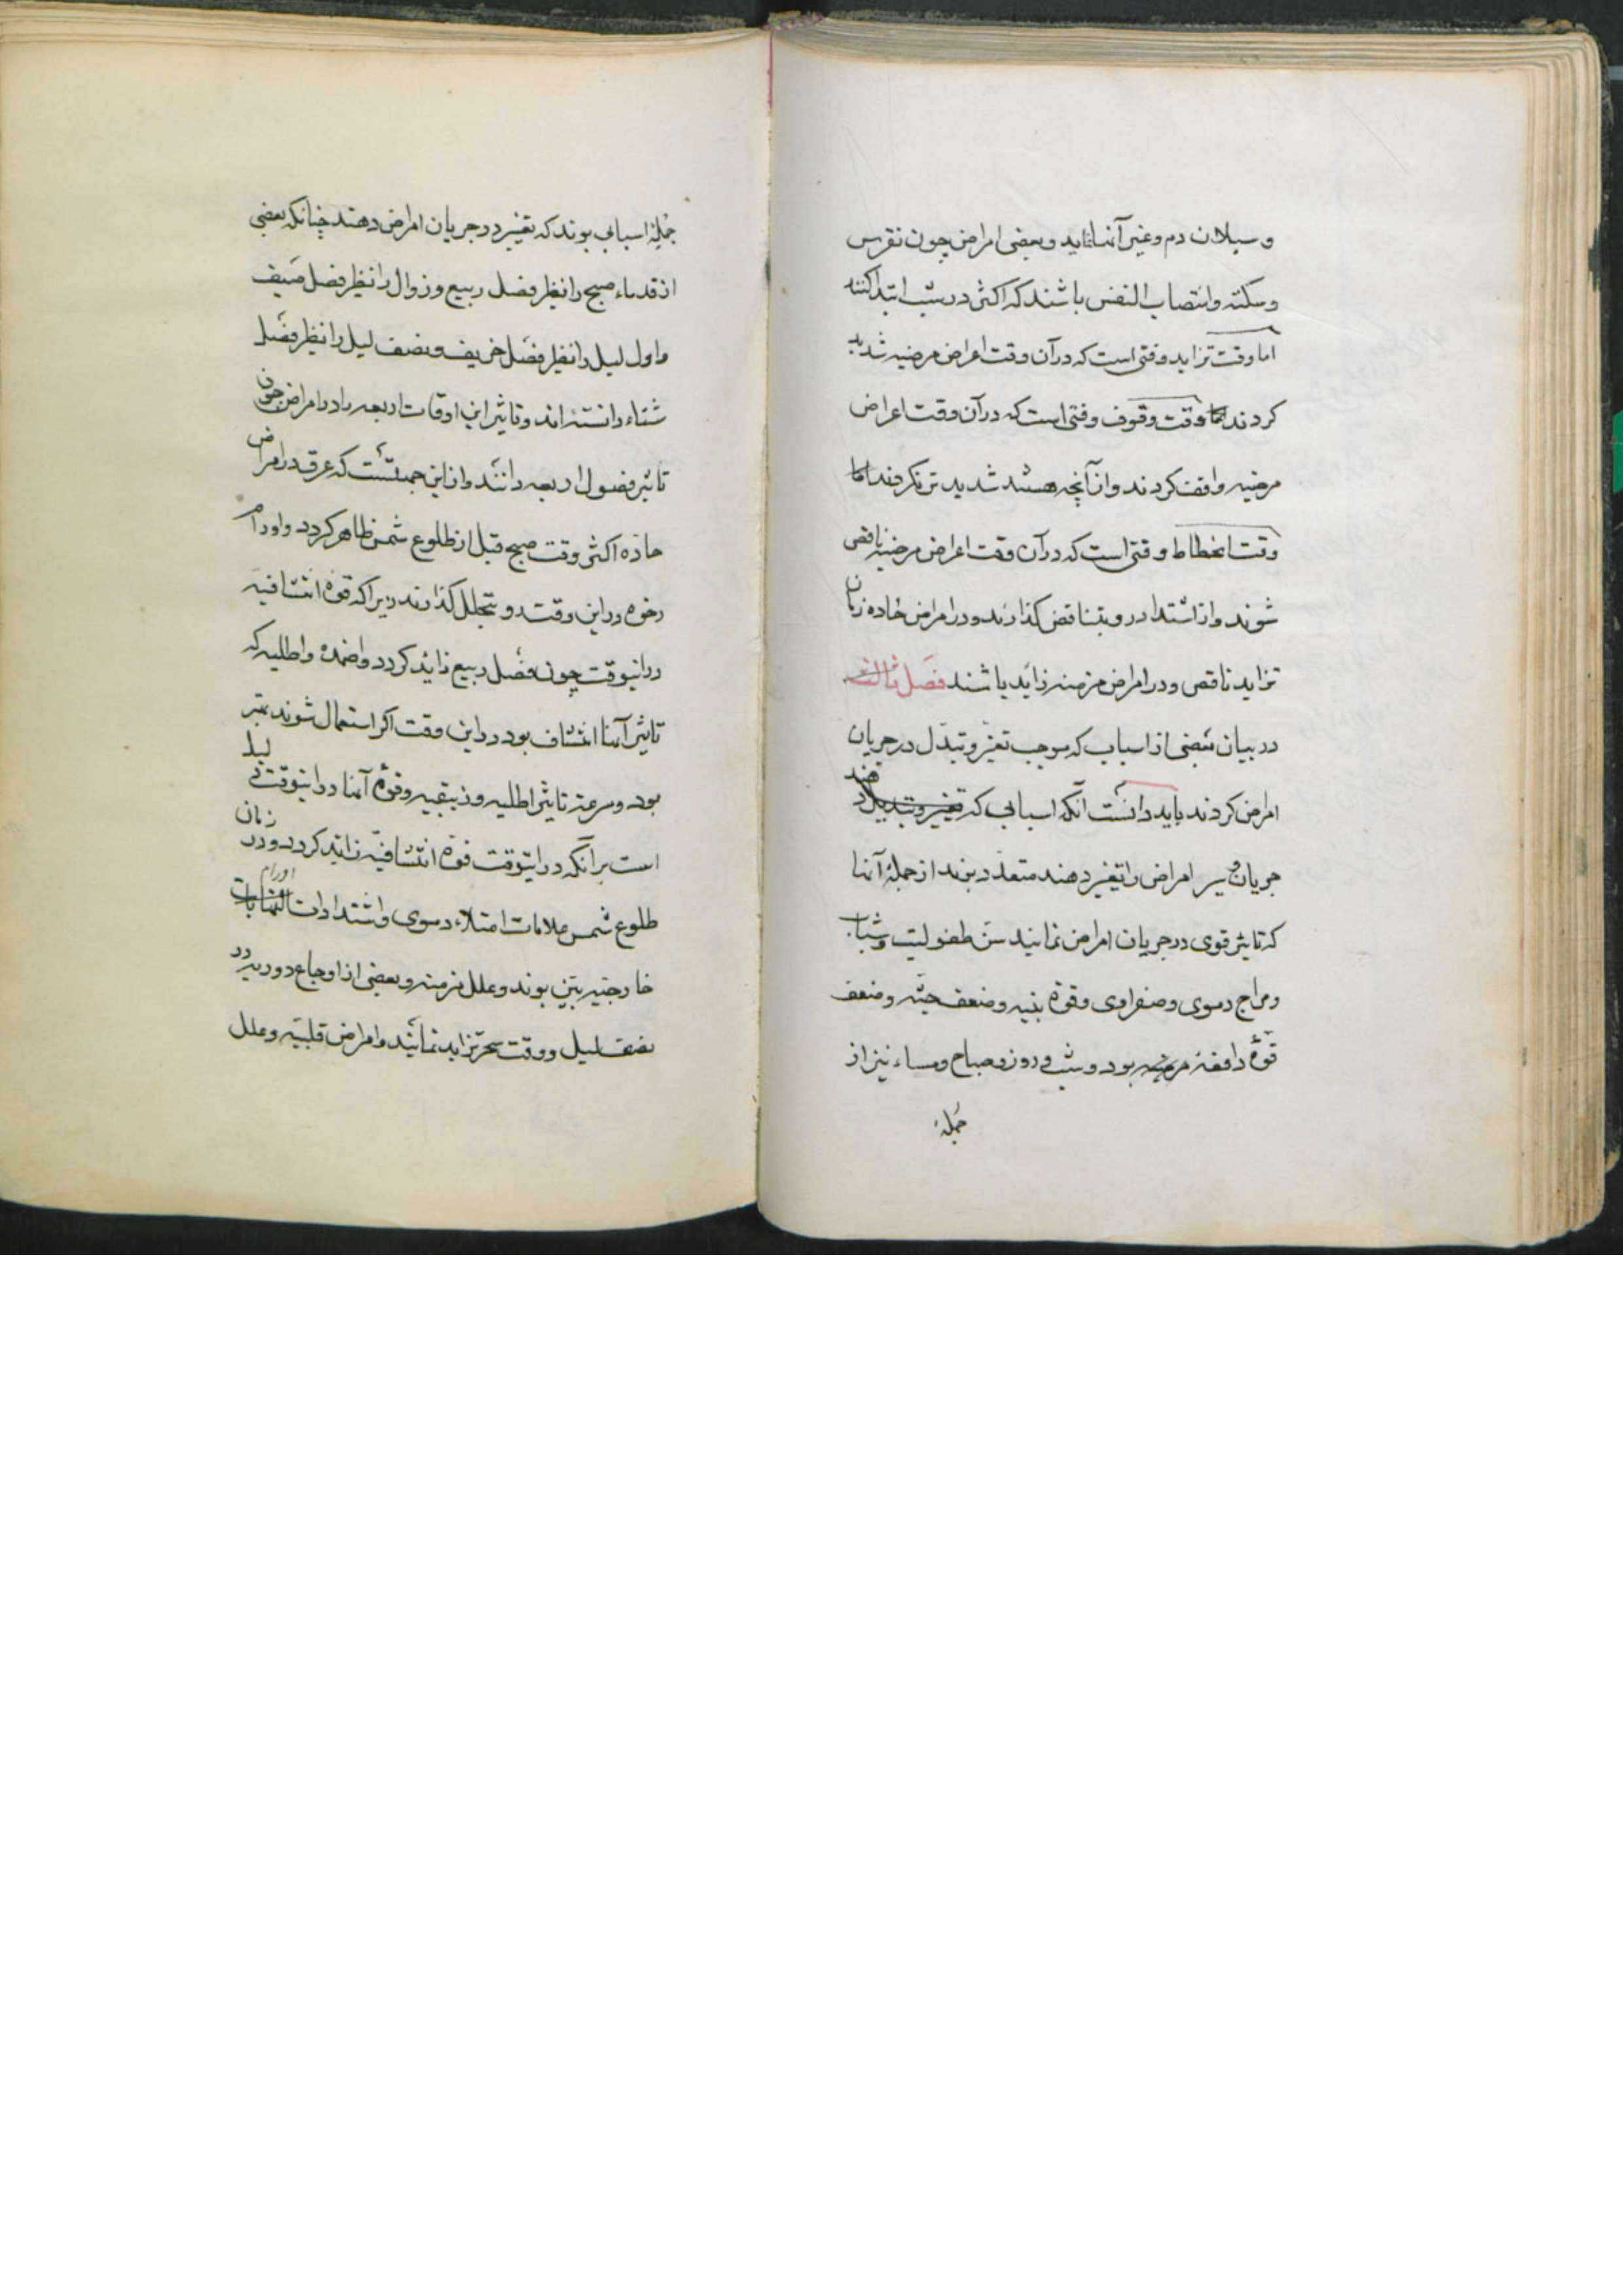 و سیلان دم و غیر آنها نماید و بعضی امراض چون نقرس
و سکته و انتصاب النفس باشند که اکثر در شب ابتدا کنند
اما وقت تزاید وقتی است که در آن وقت اعراض مرضیه شدید
کردند اما وقت وقوف وقتی است که در آن وقت اعراض
مرضیه واقف کردند و از آنچه هستند شدید تر نکردند اما
وقت انحطاط وقتی است که در آن وقت اعراض مرضیه ناقص
شوند و از اشتداد رو بتناقص کذارند و در امراض حاده زمان
تزاید ناقص و در امراض مزمنه زاید باشند فصل ثالث
در بیان بعضی از اسباب که موجب تغیر و تبدل در جریان
امراض کردند باید دانست آنکه اسبابی که تغییر و تبدیل دهند
جریان و سیر امراض را تغییر دهند متعدد بوند از جملهٔ آنها
که تاثیر قوی در جریان امراض نمایند سن طفولیت و شباب
و مزاج دموی و صفراوی و قوهٔ بنیه و ضعف جثه و ضعف
قوهٔ دافعهٔ مرضیه بود و شب و روز و صباح و مساء نیز از
جملهٔ
جملهٔ اسبابی بوند که تغییر در جریان امراض دهند چنانکه بعضی
از قدماء صبح را نظیر فصل ربیع و زوال را نظیر فصل صیف
و اول لیل را نظیر فصل خریف و نصف لیل را نظیر فصل
شتاء دانسته اند و تاثیر این اوقات اربعه را در امراض چون
تاثیر فصول اربعه دانند و از این جهتست که عرق در امراض
حاده اکثر وقت صبح قبل از طلوع شمس ظاهر کردد و اورام
رخوه در این وقت رو بتحلل کذارند زیرا که قوهٔ انتشافیه
در اینوقت چون فصل ربیع زاید کردد و اضمده و اطلیه که
تاثیر آنها انتشاف بود در این وقت اکر استعمال شوند بهتر
بود و سرعت تاثیر اطلیه و زیبقیه و قوهٔ آنها در اینوقت دلیل
است بر آنکه در اینوقت قوهٔ انتشافیه زاید کردد و در زمان
طلوع شمس علامات امتلاء دموی و اشتدادات التهابات اورام
خارجیه بین بوند و علل مزمنه و بعضی از اوجاع دوریه در
نصف لیل و وقت سحر تزاید نمایند و امراض قلبیه و علل